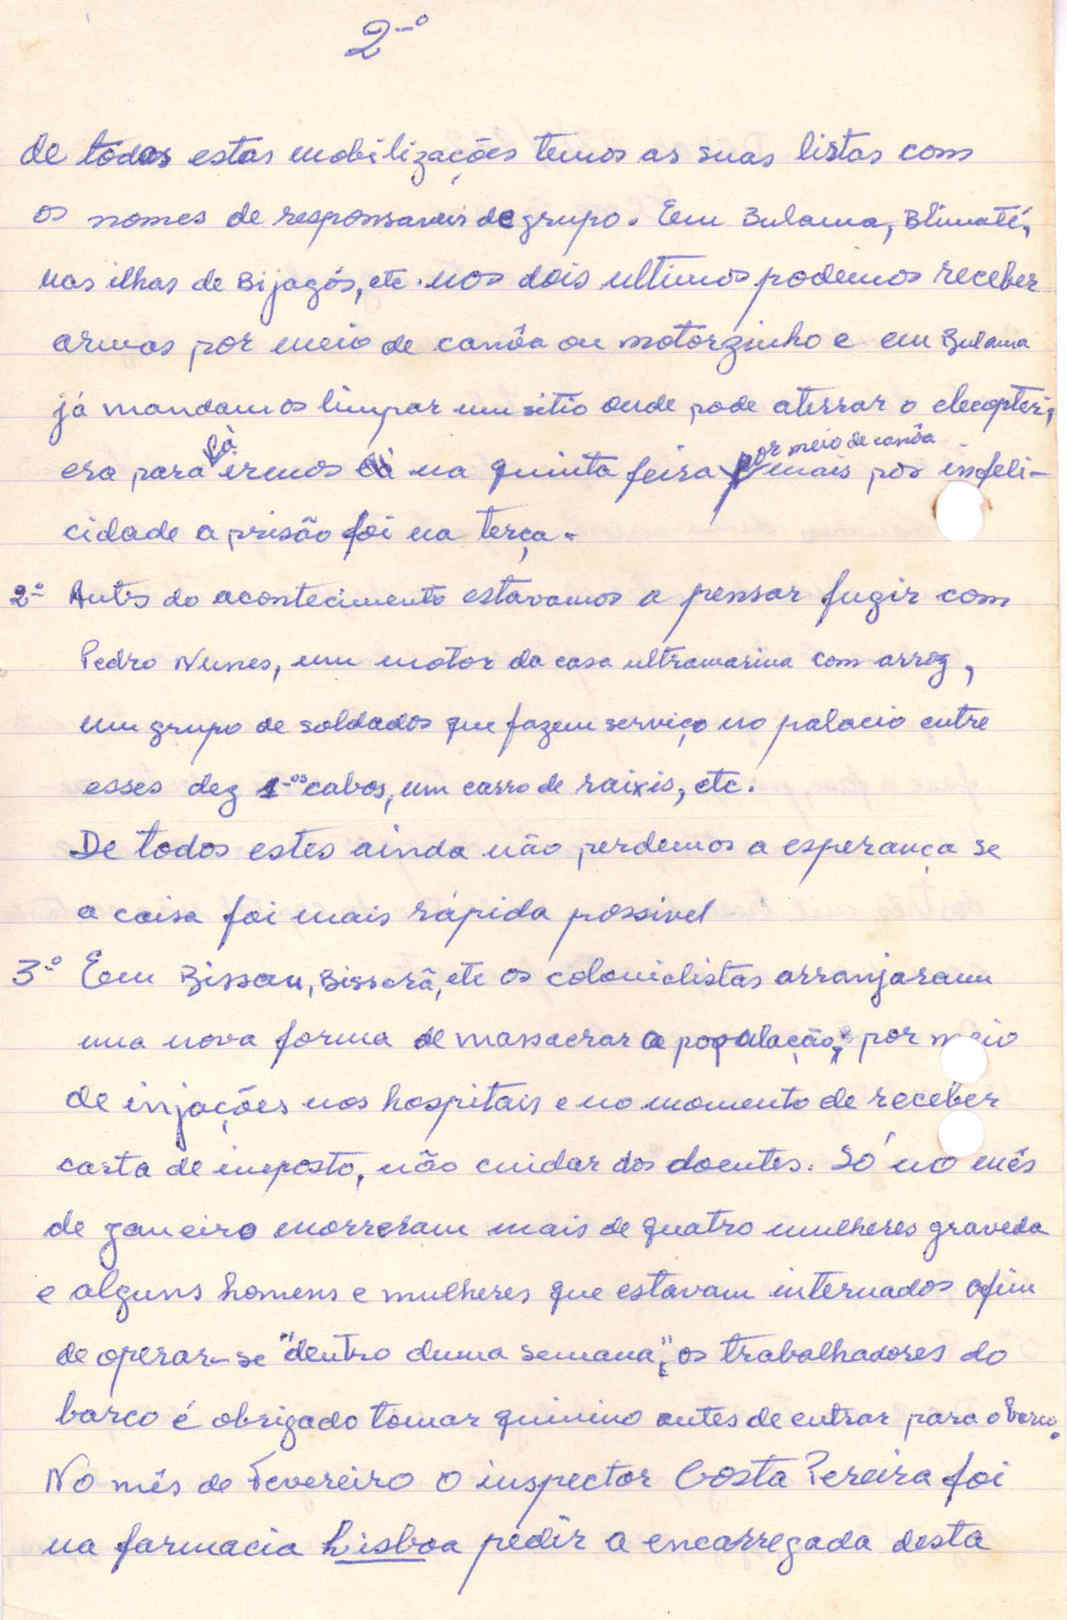 2-º
de tôdas estas mobilizações temos as suas listas com
os nomes de responsaveis de grupo. Em Bulama, Blimaté,
nas ilhas de Bijagós, etc. nos dois ultimos podemos receber
armas por meio de canôa ou motorzinho e em Bulama
já mandamos limpar um sitio onde pode aterrar o elecopteri,
era para lá irmos na quinta feira por meio de canôa mais por infeli-
cidade a prisão foi na terça.
2-º Antes do acontecimento estavamos a pensar fugir com
Pedro Nunes, um motor da casa ultramarina com arroz,
um grupo de soldados que fazem serviço no palacio entre
esses dez 1-ºs cabos, um carro de raixis, etc.
De todos estes ainda não perdemos a esperança se
a coisa foi mais rápida possivel
3-º Em Bissau, Bissorã, etc os colonialistas arranjaram
uma nova forma de massacrar a população, por meio
de injações nos hospitais e no momento de receber
carta de imposto, não cuidar dos doentes. Só no mês
de janeiro morreram mais de quatro mulheres graveda
e alguns homens e mulheres que estavam internados afim
de operar-se "dentro duma semana", os trabalhadores do
barco é obrigado tomar quinino antes de entrar para o barco.
No mês de Fevereiro o inspector Costa Pereira foi
na farmacia Lisboa pedir a encarregada desta